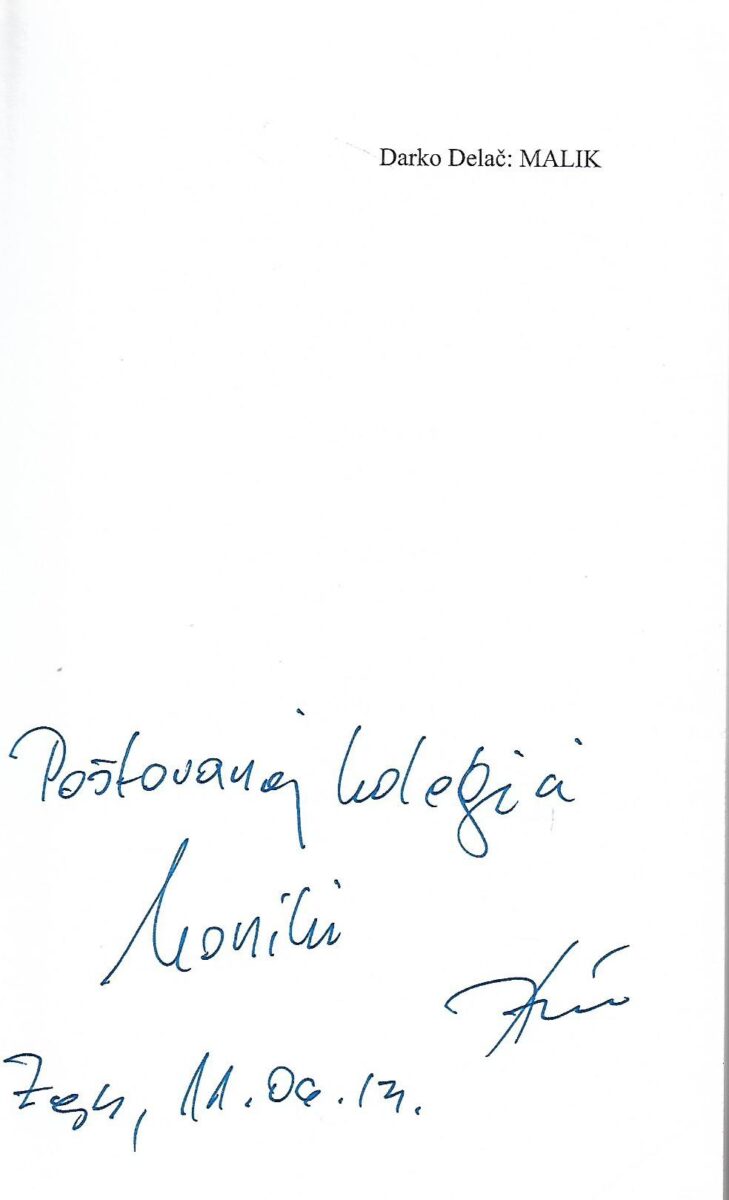 Darko Delač: MALIK
Poštovanoj kolegici
Moniki
Zgb, 11.06.